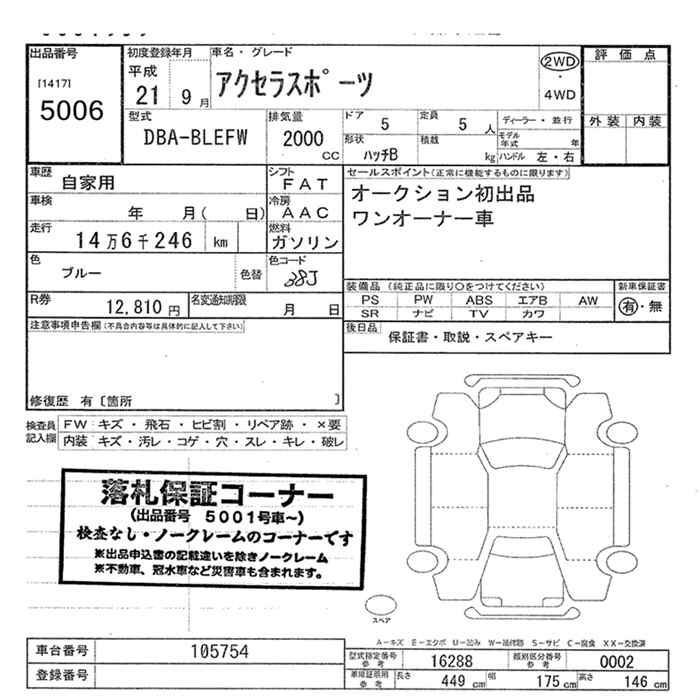 出品番号
[1417]
5006
初度登録年月
平成
21 9月
車名・グレード
アクセラスポーツ
2WD
・
4WD
評価点
外装 内装
型式
DBA-BLEFW
排気量
2000 CC
ドア 5
定員 5 人
ディーラー・並行
形状 ハッチB
積載 kg
モデル年式 年
ハンドル 左・右
車歴 自家用
シフト FAT
車検 年 月( 日)
冷房 AAC
走行 14万6千246 km
燃料 ガソリン
色 ブルー 色替
色コード 38J
R券 12,810円
名変通知期限 月 日
セールスポイント(正常に機能するものに限ります)
オークション初出品
ワンオーナー車
装備品(純正品に限り○をつけてください)
新車保証書
PS PW ABS エアB AW
SR ナビ TV カワ
有・無
後日品 保証書・取説・スペアキー
注意事項申告欄(不具合内容等は具体的に記入して下さい)
修復歴 有〔箇所 〕
検査員記入欄
FW キズ・飛石・ヒビ割・リペア跡・×要
内装 キズ・汚レ・コゲ・穴・スレ・キレ・破レ
落札保証コーナー
(出品番号 5001号車~)
検査なし・ノークレームのコーナーです
※出品申込書の記載違いを除きノークレーム
※不動車、冠水車など災害車も含まれます。
スペア
A-キズ E-エクボ U-凹み W-補修跡 S-サビ C-腐食 XX-交換済
車台番号 105754
登録番号
型式指定番号 参考 16288
類別区分番号 参考 0002
車検証裏用 参考
長さ 449 cm 幅 175 cm 高さ 146 cm